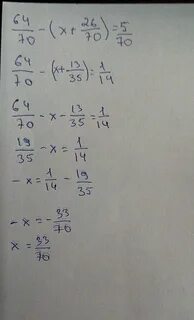 64/70 - (x + 26/70) = 5/70
64/70 - (x + 13/35) = 1/14
64/70 - x - 13/35 = 1/14
19/35 - x = 1/14
-x = 1/14 - 19/35
-x = -33/70
x = 33/70